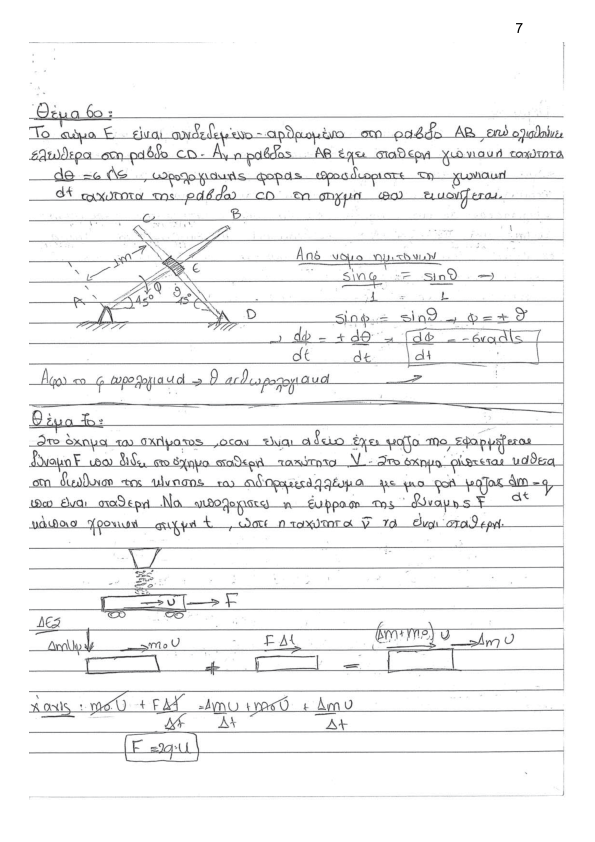 7
Θέμα 6ο:
Το σώμα Ε είναι συνδεδεμένο-αρθρωμένο στη ράβδο ΑΒ, ενώ ολισθαίνει
ελεύθερα στη ράβδο CD. Αν η ράβδος ΑΒ έχει σταθερή γωνιακή ταχύτητα
dθ/dt = 6 r/s, ωρολογιακής φοράς προσδιορίστε τη γωνιακή
ταχύτητα της ράβδου CD τη στιγμή που εικονίζεται.
C B
1m
E
A φ θ
45° 45°
D
Από νόμο ημιτόνων
sinφ/1 = sinθ/1 →
sinφ = sinθ → φ = ± θ
→ dφ/dt = ± dθ/dt → dφ/dt = -6rad/s
Αφού το φ ωρολογιακά → θ ανθωρολογιακά
Θέμα 7ο:
Στο όχημα του σχήματος, όταν είναι άδειο έχει μάζα mo, εφαρμόζεται
δύναμη F που δίδει στο όχημα σταθερή ταχύτητα V. Στο όχημα ρίπτεται κάθετα
στη διεύθυνση της κίνησης του σιδηρομετάλλευμα με μια ροή μάζας dm/dt = q
που είναι σταθερή. Να υπολογιστεί η έκφραση της δύναμης F
κάποια χρονική στιγμή t, ώστε η ταχύτητα v̄ να είναι σταθερή.
υ F
ΔΕΣ
moυ FΔt (Δm+mo)υ Δmυ
+ =
x'axis: moυ + FΔt/Δt = Δmυ/Δt + moυ + Δmυ/Δt
F = 2q·υ